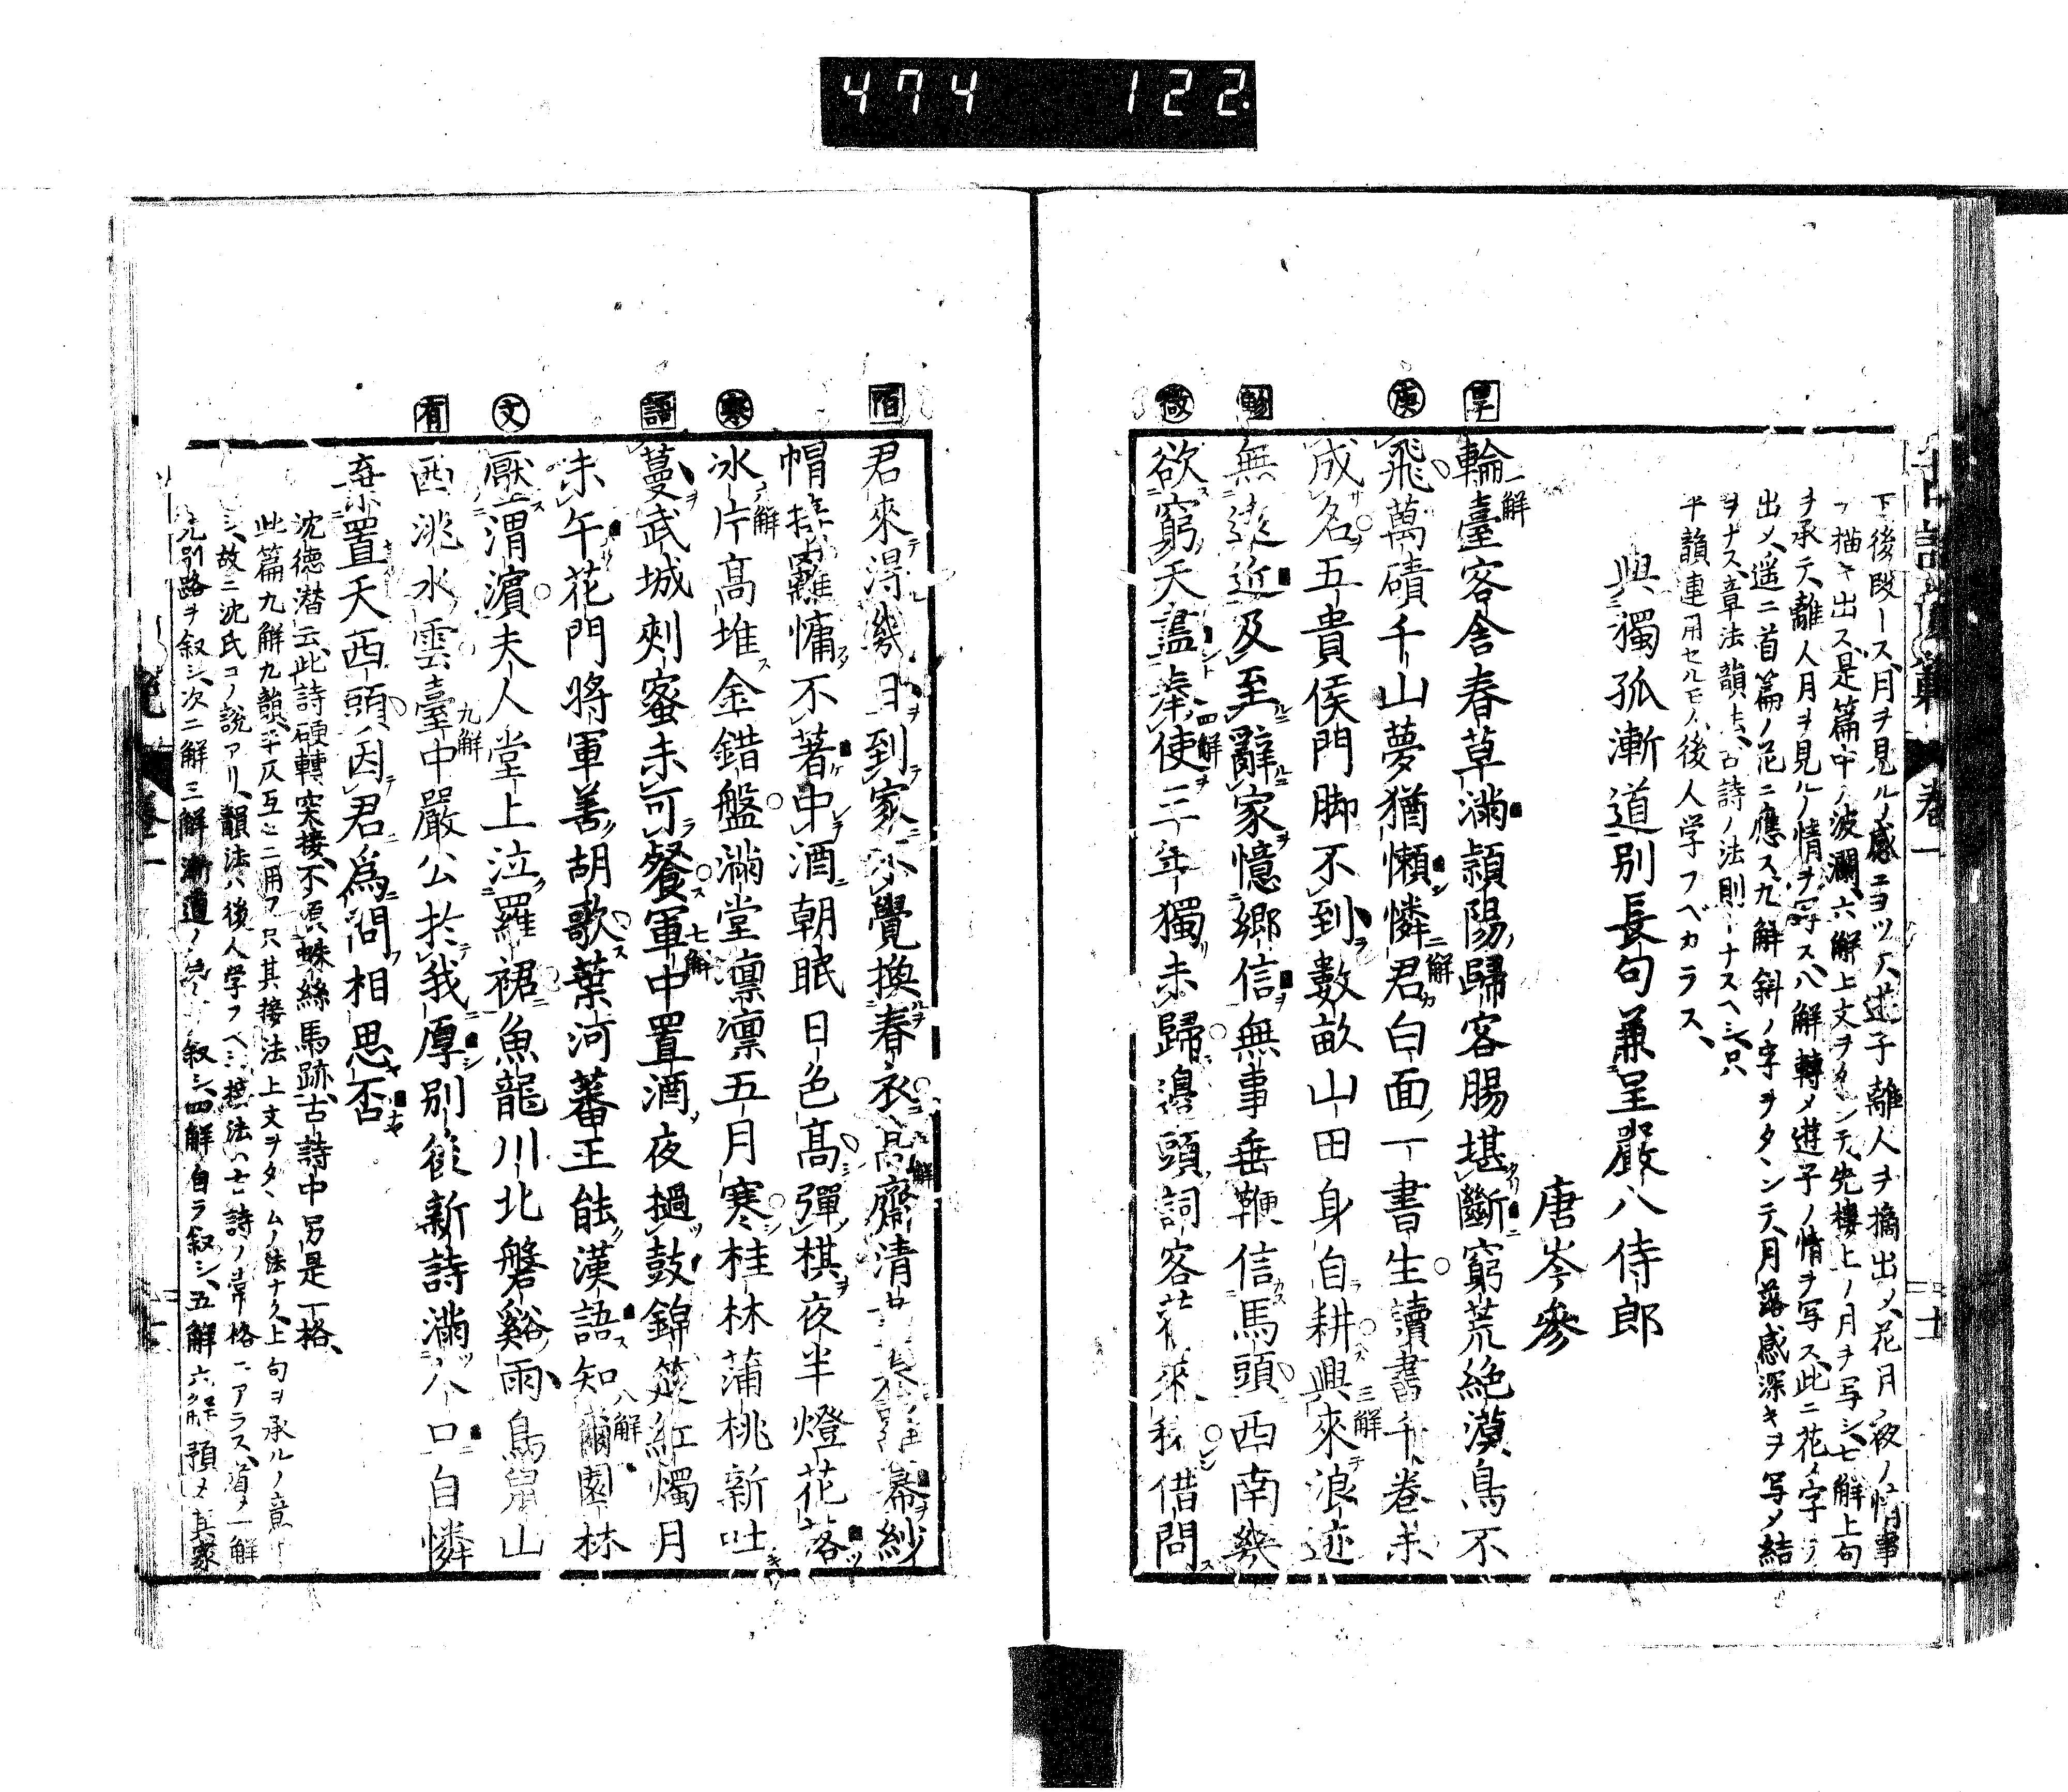 474 122
下後段ース、月ヲ見ルノ感ニヨツテ、遊子離人ヲ摘出メ、花月ノ夜ノ情事
ヲ描キ出ス、是篇中ノ波瀾、六解上文ヲタンテ、先樓上ノ月ヲ写シ、七解上句
ヲ承テ、離人月ヲ見ルノ情ヲ写ス、八解轉メ遊子ノ情ヲ写ス、此ニ花ノ字ヲ
出メ、遥ニ首篇ノ花ニ應ス、九解斜ノ字ヲタンテ、月落感深キヲ写メ結
ヲナス、章法韻法、古詩ノ法則ーナスヘシ、只
平韻連用セルモノハ後人学フベカラス、
與獨孤漸道別長句兼呈嚴八侍郎
唐岑參
旱
一解
輪臺客舍春草滿潁陽歸客腸堪斷窮荒絶漠鳥不
庚
飛萬磧千山夢猶懶憐君白面一書生讀書千卷未
二解
成名五貴侯門脚不到數畝山田身自耕興來浪迹
三解
無遠近及至辭家憶鄉信無事垂鞭信馬頭西南幾
微
欲窮天盡奉使三年獨未歸邊頭詞客舊來稀借問
四解
陌
君來得幾日到家不覺換春衣高齋清晝卷羅幕紗
帽接䍦慵不著中酒朝眠日色高彈棋夜半燈花落
寒
冰片高堆金錯盤滿堂凛凛五月寒桂林蒲桃新吐
語
蔓武城刺蜜未可餐軍中置酒夜撾鼓錦筵紅燭月
七解
未午花門將軍善胡歌葉河蕃王能漢語知爾園林
八解
文
壓渭濱夫人堂上泣羅裙魚龍川北磐谿雨鳥鼠山
有
西洮水雲臺中嚴公於我厚別後新詩滿人口自憐
九解
棄置天西頭因君爲問相思否
沈德潜云、此詩硬轉突接、不須蛛絲馬跡、古詩中另是一格、
此篇九解九韻、平仄互ニ用フ、只其接法上文ヲタヽムノ法ナク、上句ヲ承ルノ意ナ
シ、故ニ沈氏コノ說アリ、韻法ハ後人学フヘシ、接法ハ七詩ノ常格ニアラス、首メ一解
先別路ヲ叙シ、次ニ解三解漸道ノ叙シ、四解自ラ叙シ、五解六解預メ其家